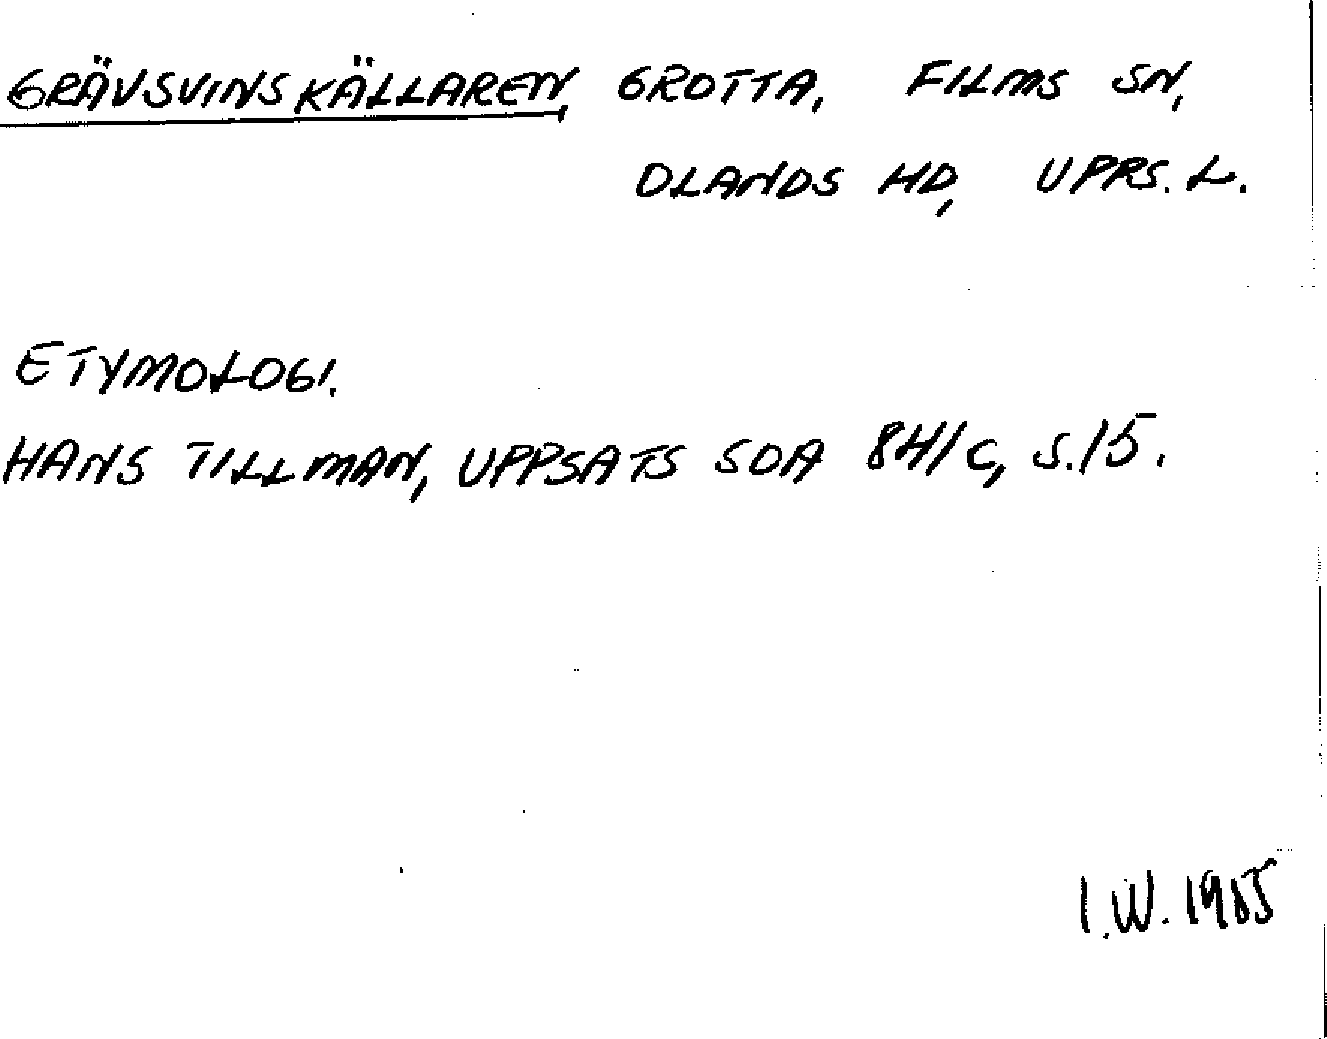 GRÄVSVINSKÄLLAREN, GROTTA, FILMS SN,
OLANDS HD, UPPS. L.
ETYMOLOGI.
HANS TILLMAN, UPPSATS SOA 8H/C, S.15.
I.W. 1985